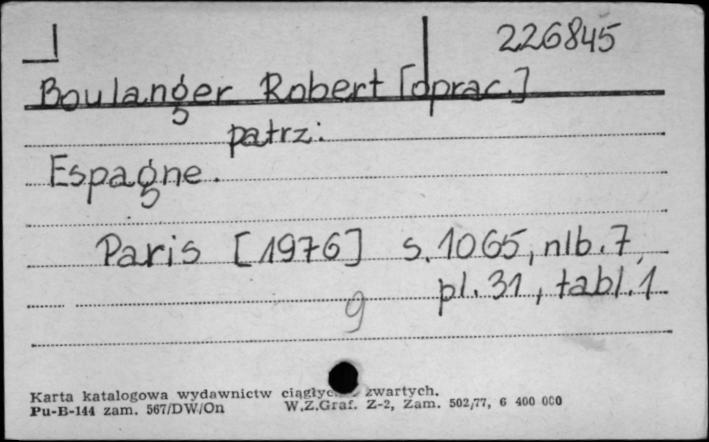 226845
Boulanger Robert [oprac.]
patrz:
Espagne.
Paris [1976] s. 1065, nlb. 7,
pl. 31, tabl. 1
9
Karta katalogowa wydawnictw zwartych.
Pu-B-144 zam. 567/DW/On W.Z.Graf. Z-2, Zam. 502/77, 6 400 000